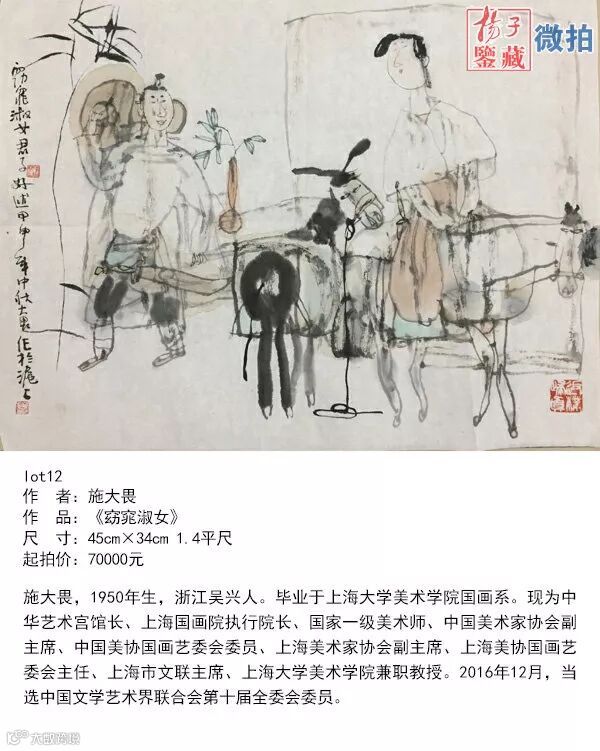 扬子
鉴藏
微拍
窈窕淑女君子好逑甲申年中秋大畏作於沪上
lot12
作 者：施大畏
作 品：《窈窕淑女》
尺 寸：45cm×34cm 1.4平尺
起拍价：70000元
施大畏，1950年生，浙江吴兴人。毕业于上海大学美术学院国画系。现为中
华艺术宫馆长、上海国画院执行院长、国家一级美术师、中国美术家协会副
主席、中国美协国画艺委会委员、上海美术家协会副主席、上海美协国画艺
委会主任、上海市文联主席、上海大学美术学院兼职教授。2016年12月，当
选中国文学艺术界联合会第十届全委会委员。
大数跨境